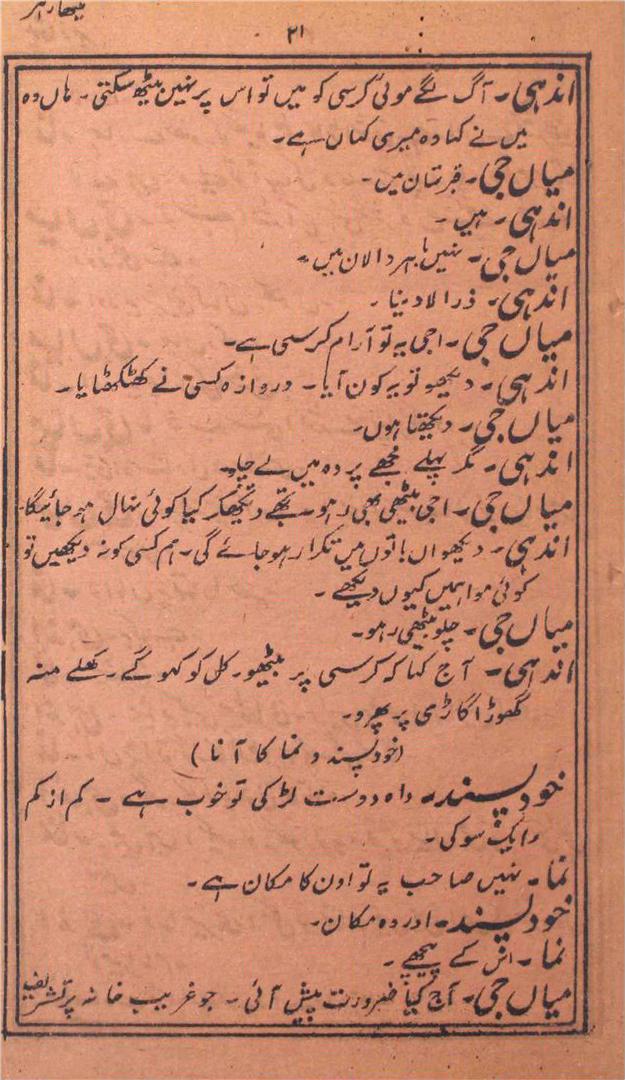 ۲۱
اندہی۔ آگ لگے موئی کرسی کو میں تو اس پر نہین بیٹھ سکتی۔ ہاں وہ
میں نے کہا وہ میری کہاں ہے۔
میاں جی۔ قبرستان میں۔
اندہی۔ ہیں۔
میاں جی۔ نہیں باہر دالان میں۔
اندہی۔ ذرا لادینا۔
میاں جی۔ اجی یہ تو آرام کرسی ہے۔
اندہی۔ دیکھو تو یہ کون آیا۔ دروازہ کسی نے کھٹکھٹایا۔
میاں جی۔ دیکھتا ہوں۔
اندہی۔ مگر پہلے مجھے پردہ میں لے چلو۔
میاں جی۔ اجی بیٹھی بھی رہو۔ تجھے دیکھکر کیا کوئی نہال ہو جائیگا۔
اندہی۔ دیکھو ان باتوں میں تکرار ہو جائے گی۔ ہم کسی کو نہ دیکھیں تو
کوئی موا ہمیں کیوں دیکھے۔
میاں جی۔ چلو بیٹھی رہو۔
اندہی۔ آج کہا کہ کرسی پر بیٹھو۔ کل کو کہو گے۔ کھلے منہ
گھوڑا گاڑی پر پھرو۔
(خود پسند و نما کا آنا)
خود پسند۔ واہ دوست لڑکی تو خوب ہے۔ کم از کم
ایک سو کی۔
نما۔ نہیں صاحب یہ تو اون کا مکان ہے۔
خود پسند۔ اور وہ مکان۔
نما۔ اس کے پیچھے۔
میاں جی۔ آج کیا ضرورت پیش آئی۔ جو غریب خانہ پر تشریف